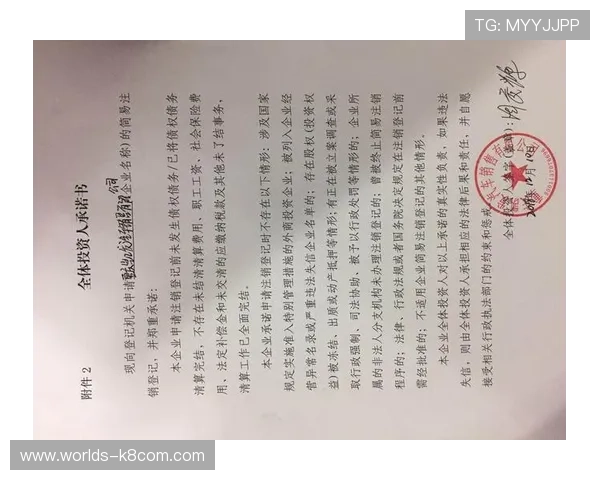 TG: MYYJJPP
附件 2
全体投资人承诺书
现向登记机关申请(企业名称)的简易注
销登记，并郑重承诺：
本企业申请注销登记前未发生债权债务/已将债权债务
清算完结，不存在未结清清算费用、职工工资、社会保险费
用、法定补偿金和未交清的应缴纳税款及其他未了结事务，
清算工作已全面完结。
本企业承诺申请注销登记时不存在以下情形：涉及国家
规定实施准入特别管理措施的外商投资企业；被列入企业经
营异常名录或严重违法失信企业名单的；存在股权(投资权
益)被冻结、出质或动产抵押等情形；有正在被立案调查或采
取行政强制、司法协助、被予以行政处罚等情形的；企业所
属的非法人分支机构未办理注销登记的；曾被终止简易注销
程序的；法律、行政法规或者国务院决定规定在注销登记前
需经批准的；不适用企业简易注销登记的其他情形。
本企业全体投资人对以上承诺的真实性负责，如果违法
失信，则由全体投资人承担相应的法律后果和责任，并自愿
接受相关行政执法部门的约束和惩戒。
全体投资人签字
www-worlds-k8com.com